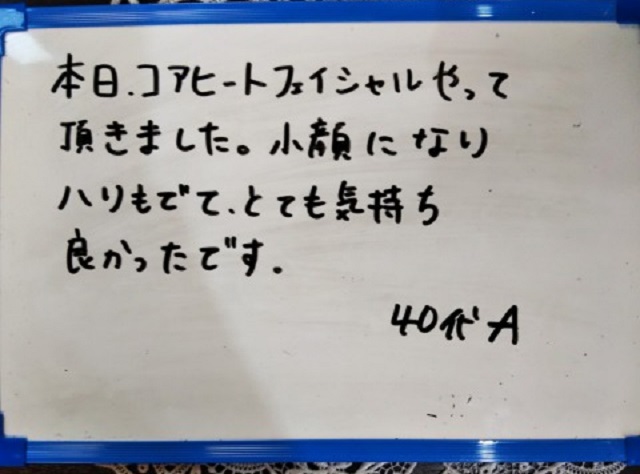 本日、コアヒートフェイシャルやって
頂きました。小顔になり
ハリもでて、とても気持ち
良かったです。
40代A